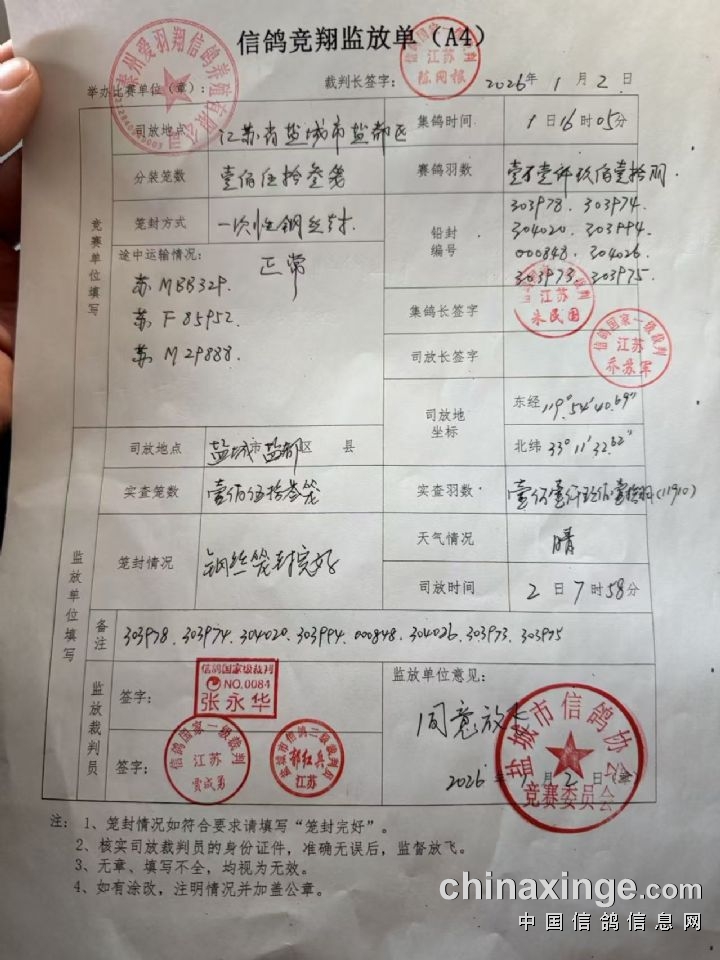 信鸽竞翔监放单（A4）
举办比赛单位（章）： 裁判长签字： 2026年1月2日
江苏
竞赛单位填写
司放地点 江苏省盐城市盐都区 集鸽时间 1日16时05分
分装笼数 壹佰伍拾叁笼 赛鸽羽数 壹万壹仟玖佰壹拾羽
笼封方式 一次性钢丝封. 铅封编号 303978. 303974.
304020. 303994.
000848. 304026.
303973. 303975.
途中运输情况： 正常
苏MBB329.
苏F85952.
苏M29888.
集鸽长签字 江苏 朱民国
司放长签字 信鸽国家一级裁判 江苏 乔苏军
司放地坐标 东经 119°54′40.69″
北纬 33°11′32.62″
监放单位填写
司放地点 盐城市盐都区 县
实查笼数 壹佰伍拾叁笼 实查羽数 (11910)
笼封情况 钢丝笼封完好 天气情况 晴
司放时间 2日7时58分
备注 303978.303974.304020.303994.000848.304026.303973.303975
监放裁判员
签字： 信鸽国家级裁判
NO.0084
张永华
签字： 信鸽国家一级裁判 江苏
盐城市信鸽二级裁判员 郁红兵 江苏
监放单位意见：
同意放飞
2026年1月2日（章）
盐城市信鸽协会
竞赛委员会
注： 1、笼封情况如符合要求请填写“笼封完好”。
2、核实司放裁判员的身份证件，准确无误后，监督放飞。
3、无章、填写不全，均视为无效。
4、如有涂改，注明情况并加盖公章。
chinaxinge.com
中国信鸽信息网